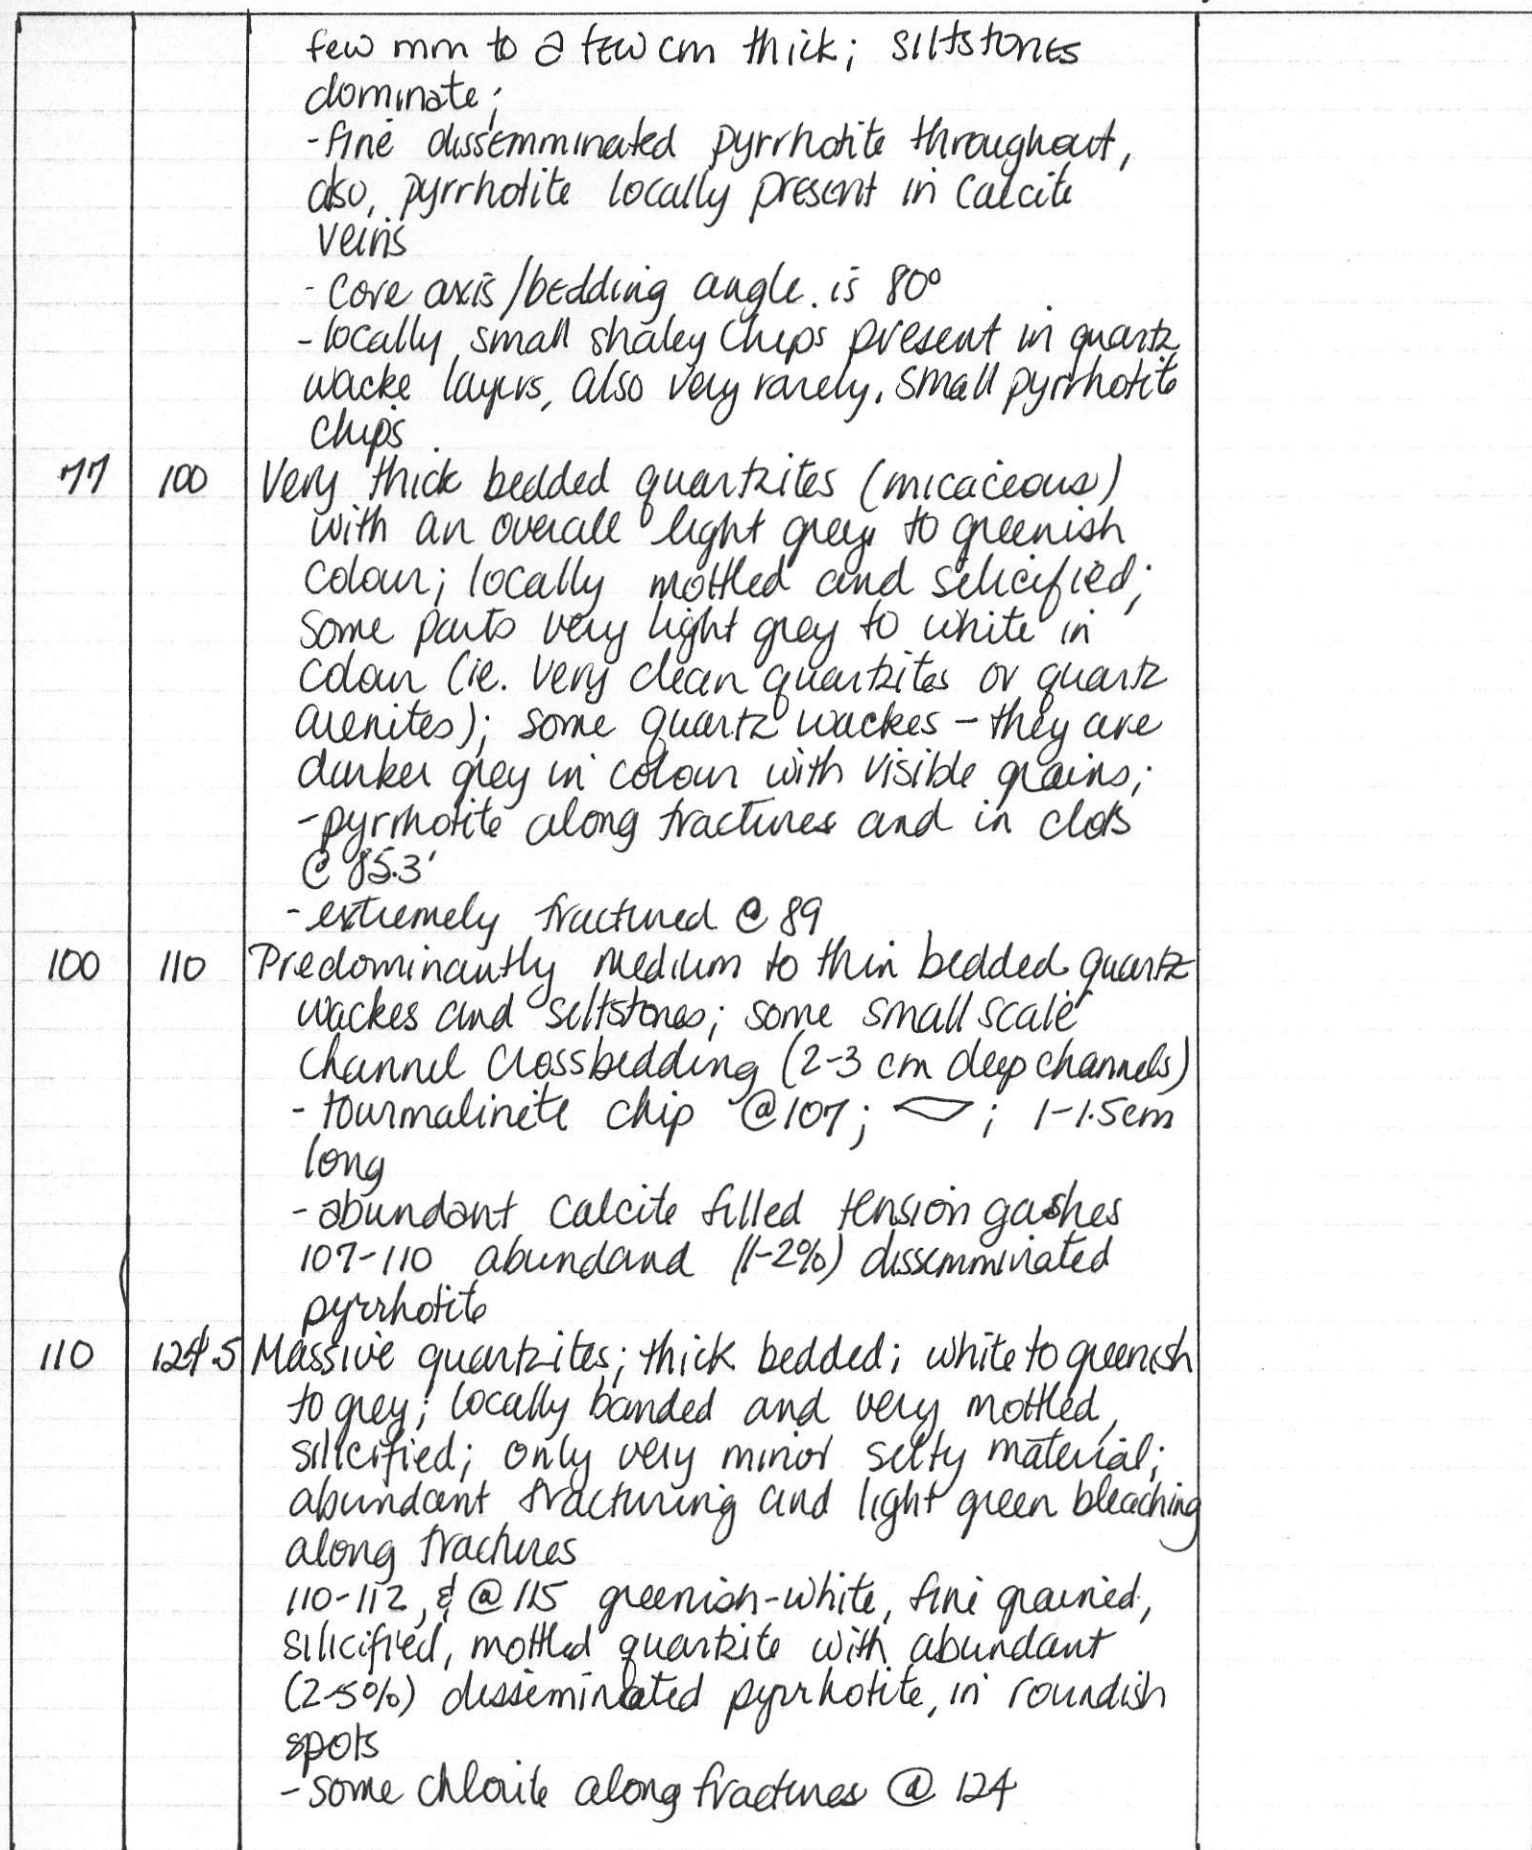 few mm to a few cm thick; siltstones
dominate;
-fine dissemminated pyrrhotite throughout,
also, pyrrhotite locally present in calcite
veins
- core axis/bedding angle. is 80°
- locally small shaley chips present in quartz
wacke layers, also very rarely, small pyrrhotite
chips.
77 100 Very thick bedded quartzites (micaceous)
with an overall light grey to greenish
colour; locally mottled and silicified;
some parts very light grey to white in
colour (ie. very clean quartzites or quartz
arenites); some quartz wackes - they are
darker grey in colour with visible grains;
- pyrrhotite along fractures and in clots
@ 85.3'
- extremely fractured @ 89
100 110 Predominantly medium to thin bedded quartz
wackes and siltstones; some small scale
channel crossbedding (2-3 cm deep channels)
- tourmalinite chip @ 107; ; 1-1.5cm
long
- abundant calcite filled tension gashes
107-110 abundand (1-2%) dissemminated
pyrrhotite
110 124.5 Massive quartzites; thick bedded; white to greenish
to grey; locally banded and very mottled,
silicified; only very minor silty material;
abundant fracturing and light green bleaching
along fractures
110-112, & @ 115 greenish-white, fine grained,
silicified, mottled quartzite with abundant
(2-5%) disseminated pyrrhotite, in roundish
spots
- some chlorite along fractures @ 124